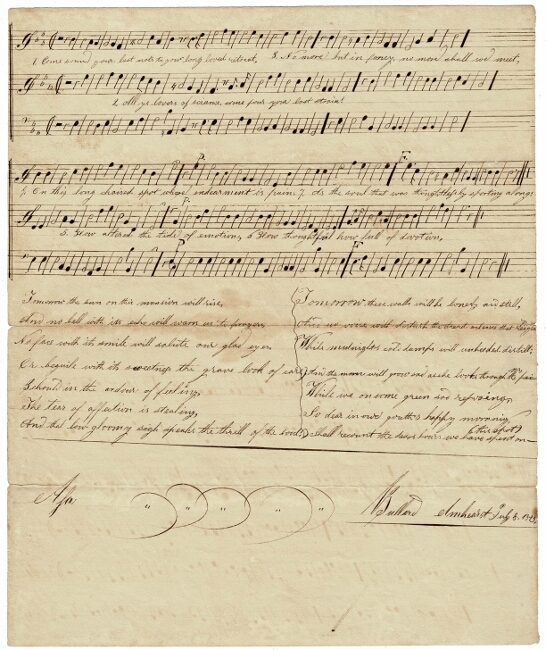 1. Come your last note to your long loved retreat, 3. No more but in fancy, no more shall we meet,
2. All ye lovers of pour your last strain!
5. On this long spot whose endearment is 7. As the soul that was thoughtlessly sporting along,
5. How the tide of emotion, 6 How thoughtful how full of devotion,
Tomorrow the sun on this mansion will rise,
And no bell with its echo will warn us to prayers,
No face with its smile will salute our glad eyes
Or beguile with its sweetings the grave look of care,
Behold in the ardour of feeling,
The tear of affection is stealing,
And that low gloomy sigh speaks the thrill of the soul,
Tomorrow these walls will be lonely and still,
voice will disturb the silence that
While midnights cold damps will unheeded distill,
the moon will pour as she looks through the
While we on some green sod reposing,
To dear in our youth's happy morning,
(this spot)
Shall recount the dear hours we have spent on
Asa " " " " Bullard Amherst July 8.